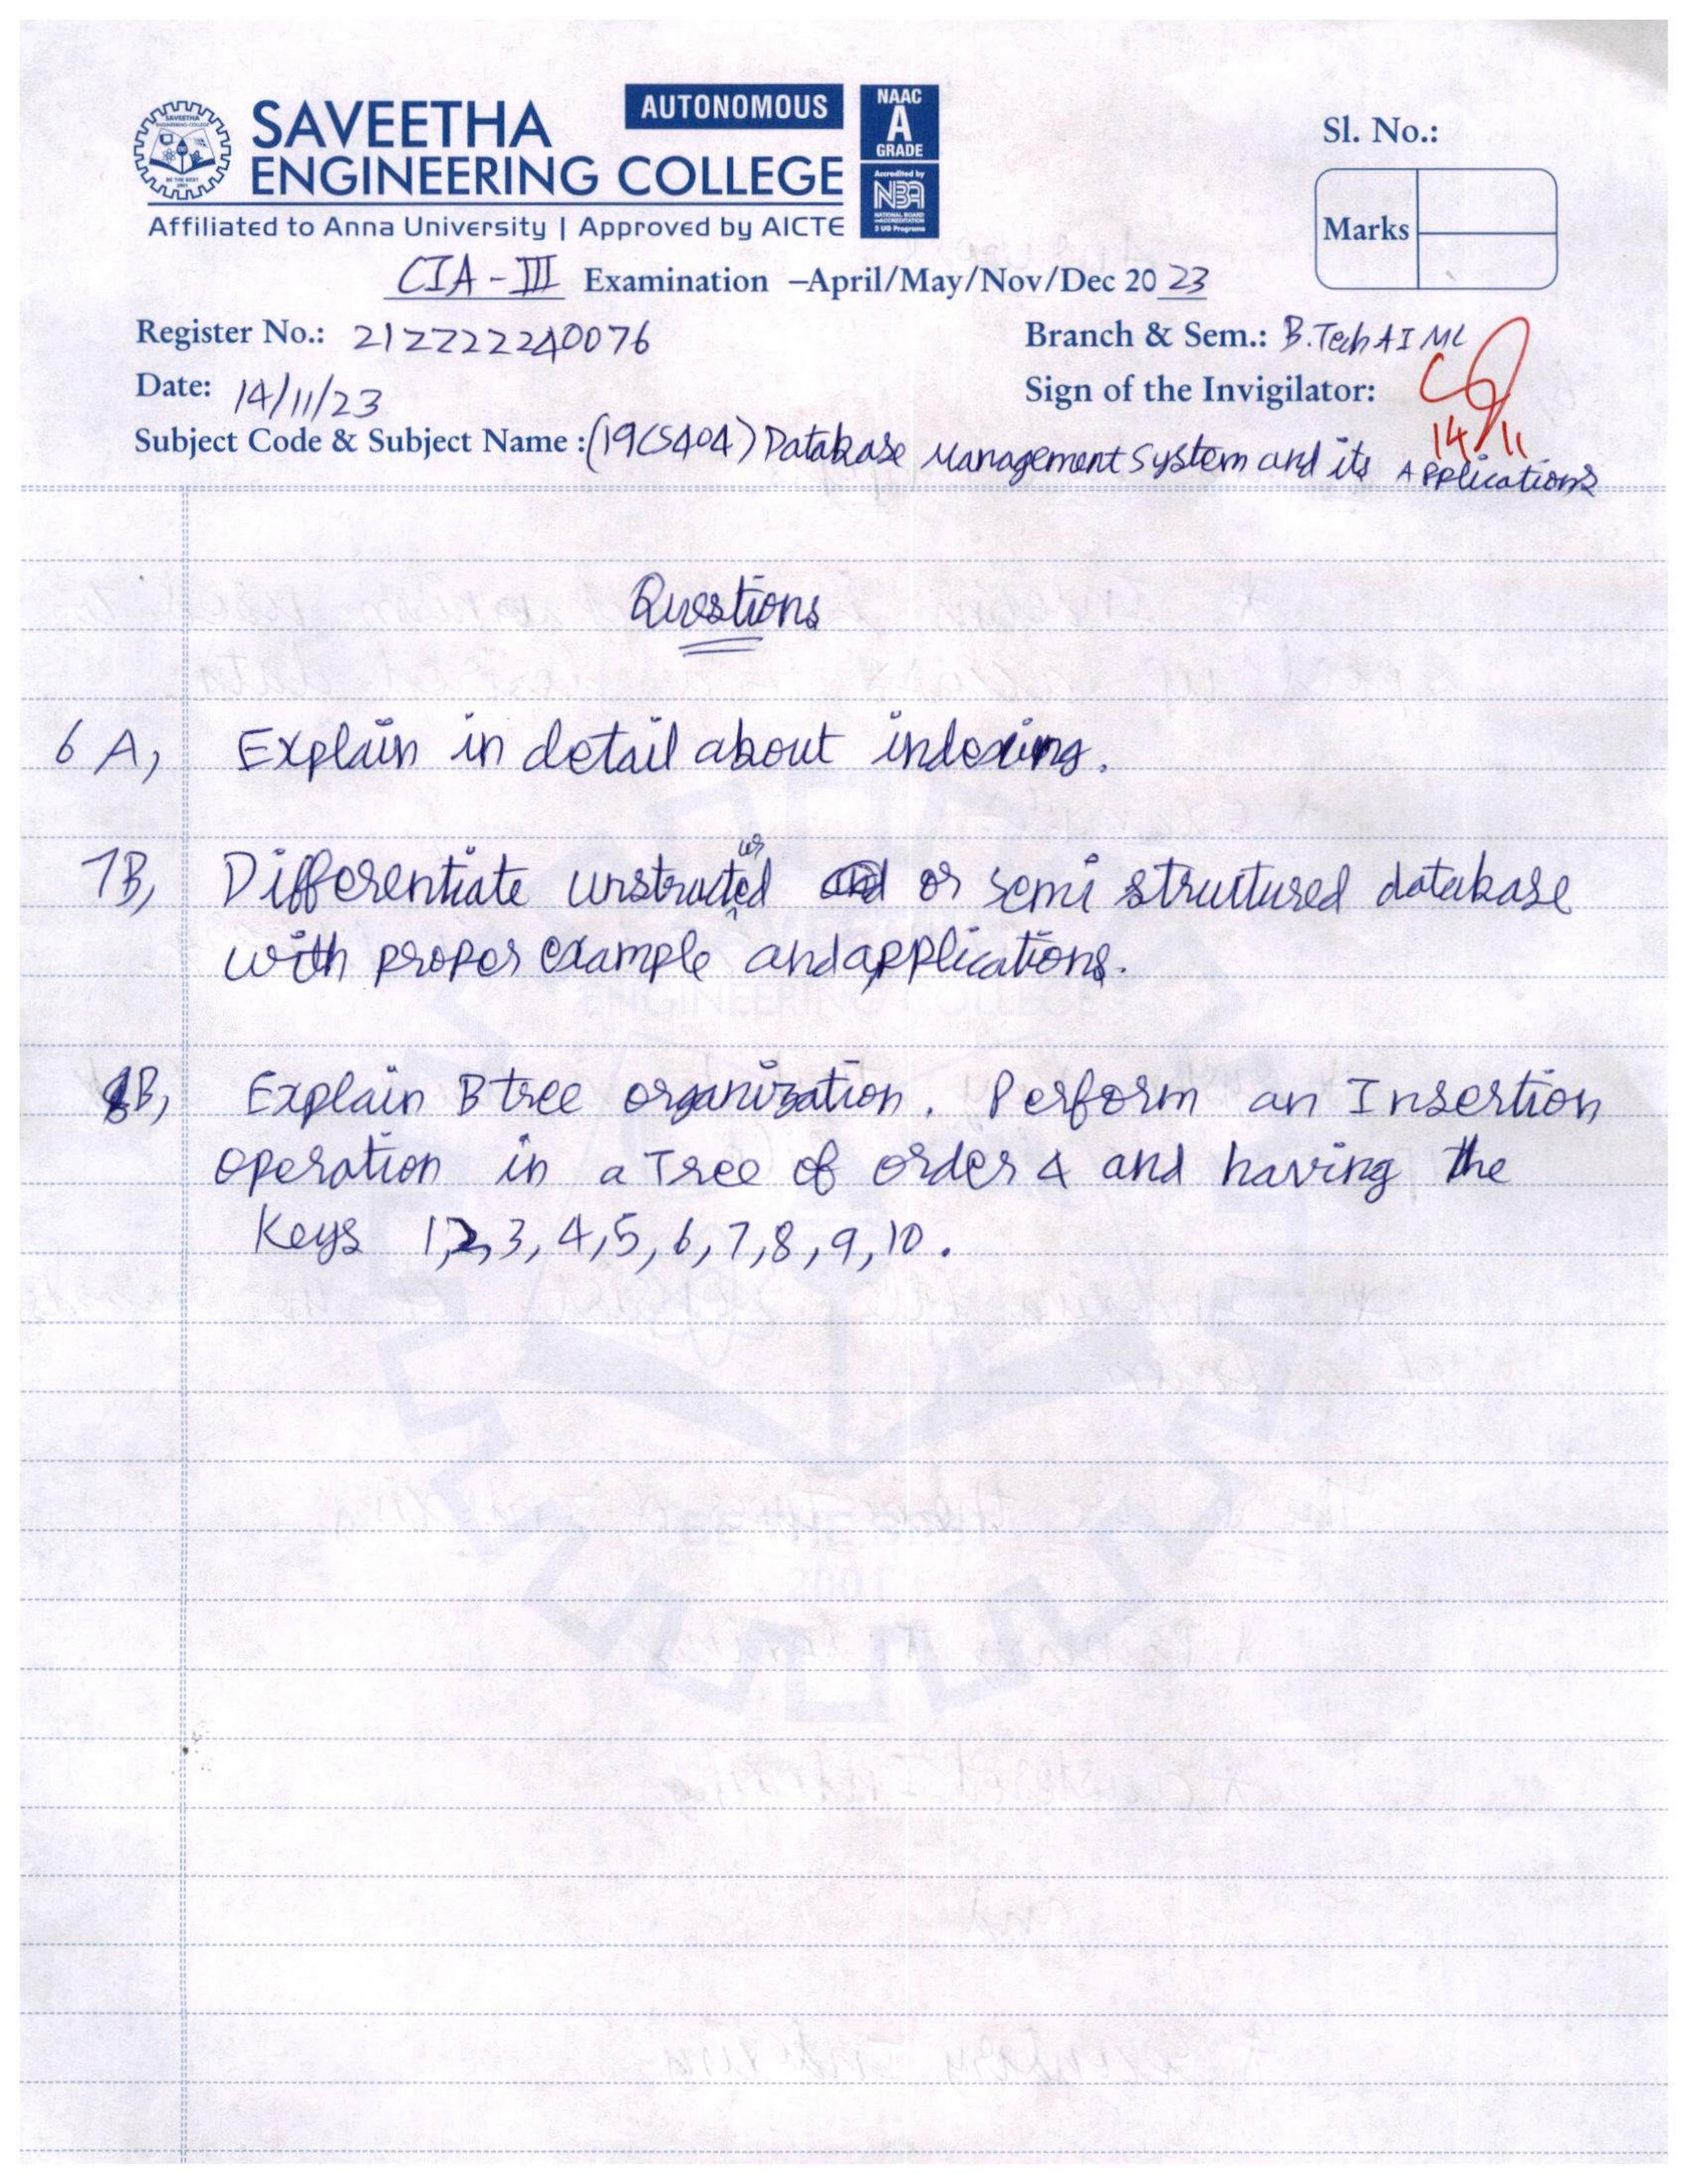 SAVEETHA
ENGINEERING COLLEGE
AUTONOMOUS
NAAC
A
GRADE
Accredited by
NBA
NATIONAL BOARD
of ACCREDITATION
5 UG Programs
Affiliated to Anna University | Approved by AICTE
Sl. No.:
Marks
CIA - III Examination –April/May/Nov/Dec 20 23
Register No.: 212222240076
Branch & Sem.: B.Tech AI ML
Date: 14/11/23
Sign of the Invigilator:
14/11
Subject Code & Subject Name :(19CS404) Database Management System and its Applications
Questions
6 A, Explain in detail about indexing.
7B, Differentiate unstructured or semi structured database
with proper example and applications.
8B, Explain B tree organization. Perform an Insertion
operation in a Tree of order 4 and having the
Keys 1,2,3,4,5,6,7,8,9,10.